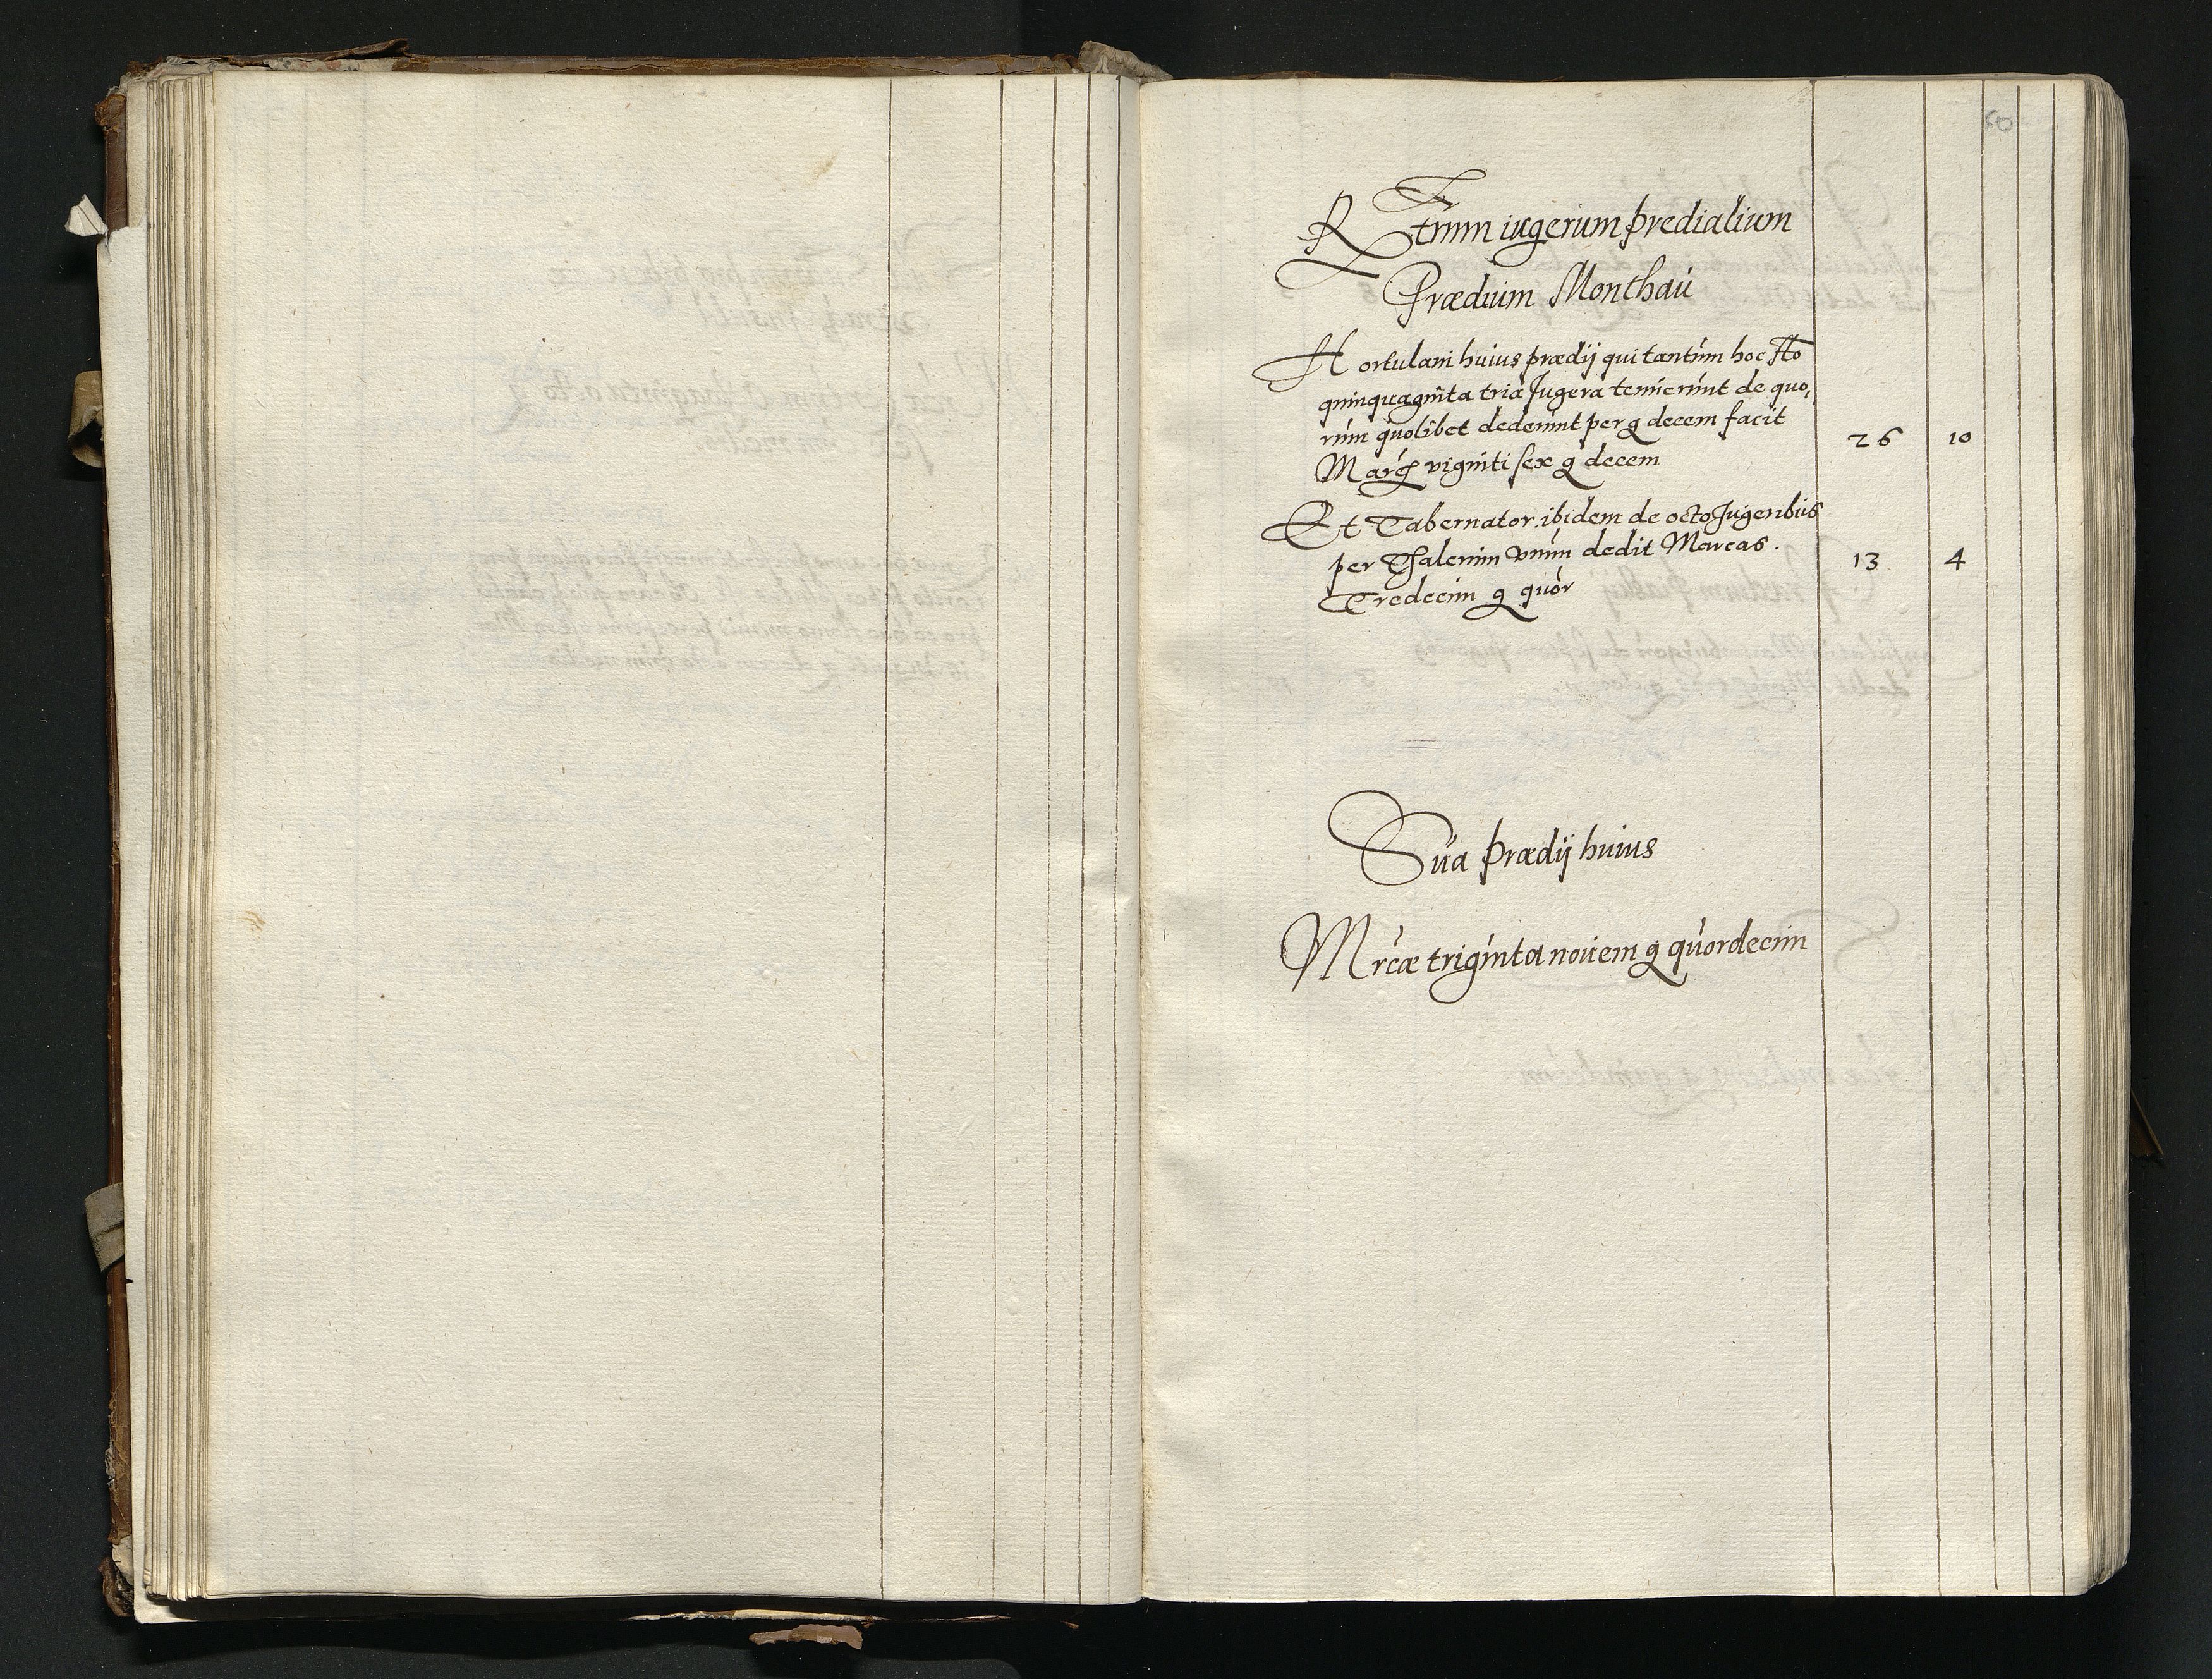 60
Rtnm iugerum predialium
Prædium Monthau
Hortulani huius prædij qui tantum hoc Ao
quinquaginta tria Jugera tenuerunt de quo,
rum quolibet dederunt per g decem facit
Marcas viginti sex g decem 26 10
Et Tabernator ibidem de octo Jugeribus
per Thalerum vnum dedit Marcas. 13 4
Tredecim g quor
Sua prædij huius
Mrcæ triginta nouem g quordecim